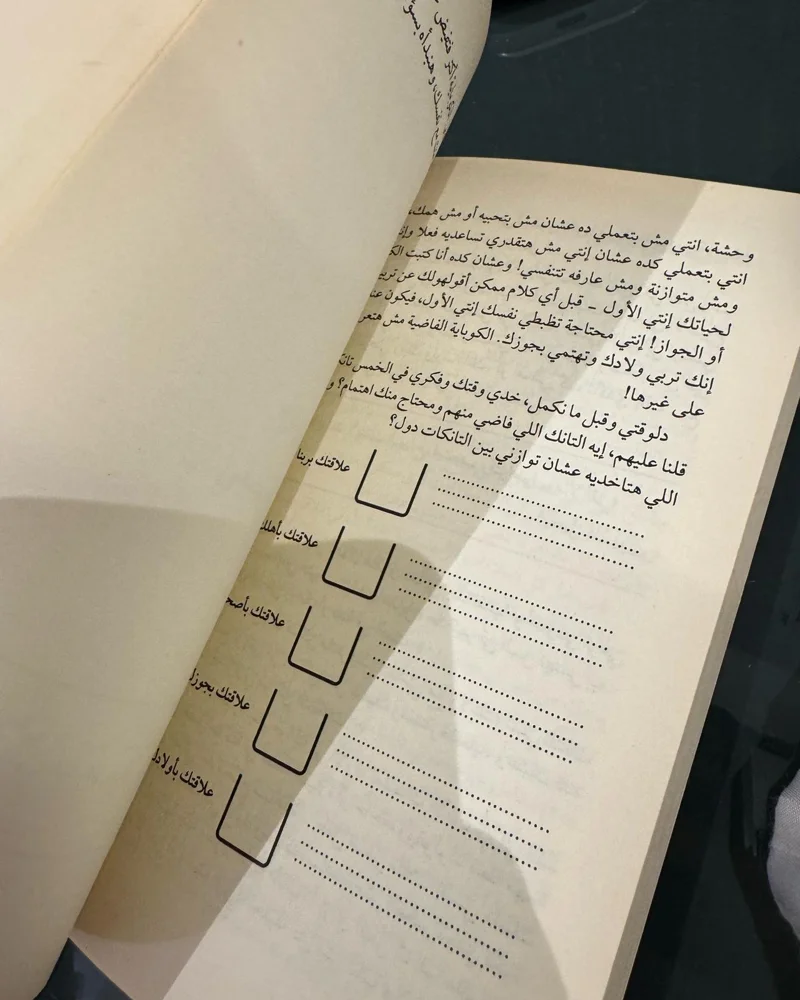 وحشة، انتي مش بتعملي ده عشان مش بتحبيه أو مش همك،
انتي بتعملي كده عشان إنتي مش هتقدري تساعديه فعلا
ومش متوازنة ومش عارفه تتنفسي! وعشان كده أنا كتبت
لحياتك إنتي الأول – قبل أي كلام ممكن أقولهولك عن
أو الجواز! إنتي محتاجة تظبطي نفسك إنتي الأول، فيكون
إنك تربي ولادك وتهتمي بجوزك. الكوباية الفاضية مش
على غيرها!
دلوقتي وقبل ما نكمل، خدي وقتك وفكري في الخمس
قلنا عليهم، إيه التانك اللي فاضي منهم ومحتاج منك اهتمام؟
اللي هتاخديه عشان توازني بين التانكات دول؟
علاقتك بربنا
علاقتك بأهلك
علاقتك
علاقتك
علاقتك